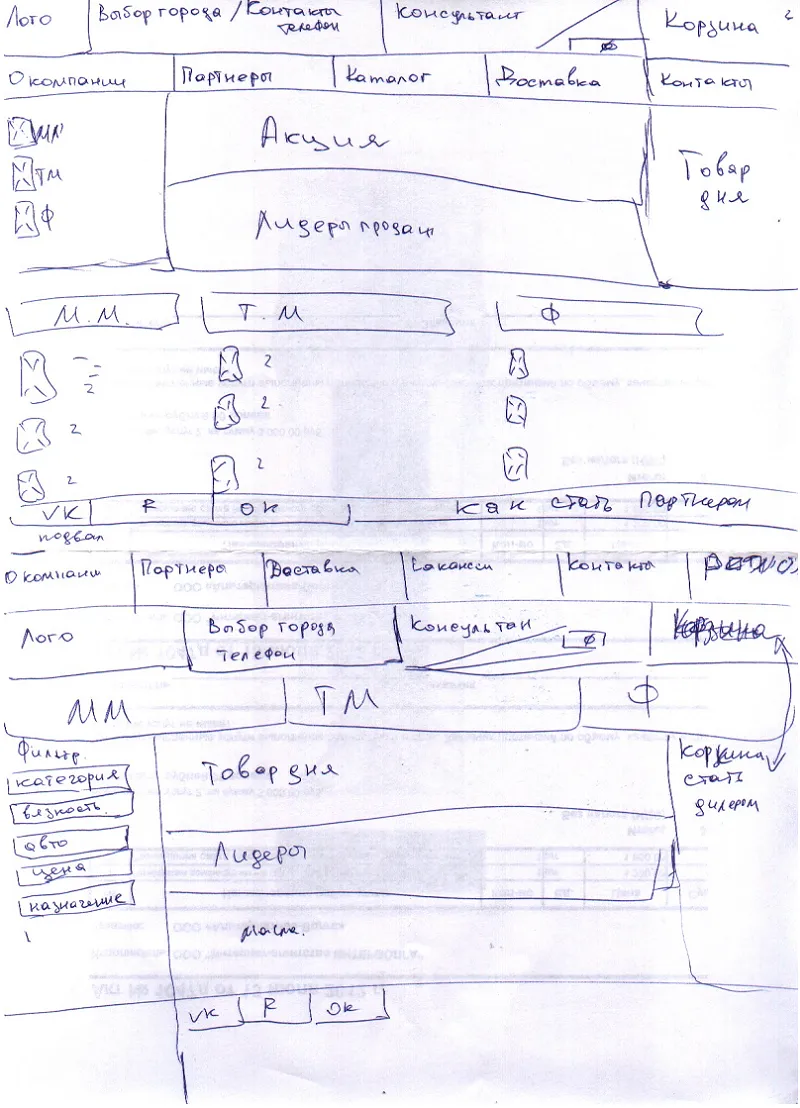 Лого Выбор города / Контакты Консультант Корзина 2
телефон
О компании Партнеры Каталог Доставка Контакты
ММ
ТМ
Ф
Акция
Товар
дня
Лидеры продаж
М.М. Т.М Ф
2
2
2
2
2
2
VK R OK Как стать партнером
подвал
О компании Партнеры Доставка Вакансии Контакты
Лого Выбор города Консультан Корзина
телефон
ММ ТМ Ф
Фильтр.
категория
вязкость
авто
цена
назначение
Товар дня
Корзина
стать
дилером
Лидеры
масла.
VK R OK